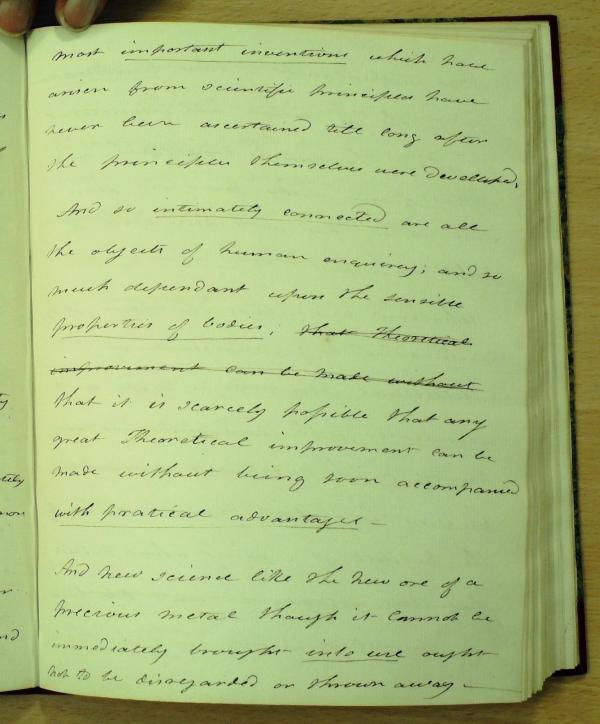 most important inventions which have
arisen from scientific principles have
never been ascertained till long after
the principles themselves were developed.
And so intimately connected are all
the objects of human enquirey; and so
much dependant upon the sensible
properties of bodies; that Theoretical
improvement can be made without
that it is scarcely possible that any
great Theoretical improvement can be
made without being soon accompanied
with pratical advantages -
And new science like the new ore of a
precious metal though it cannot be
immediately brought into use ought
not to be disregarded or thrown away -